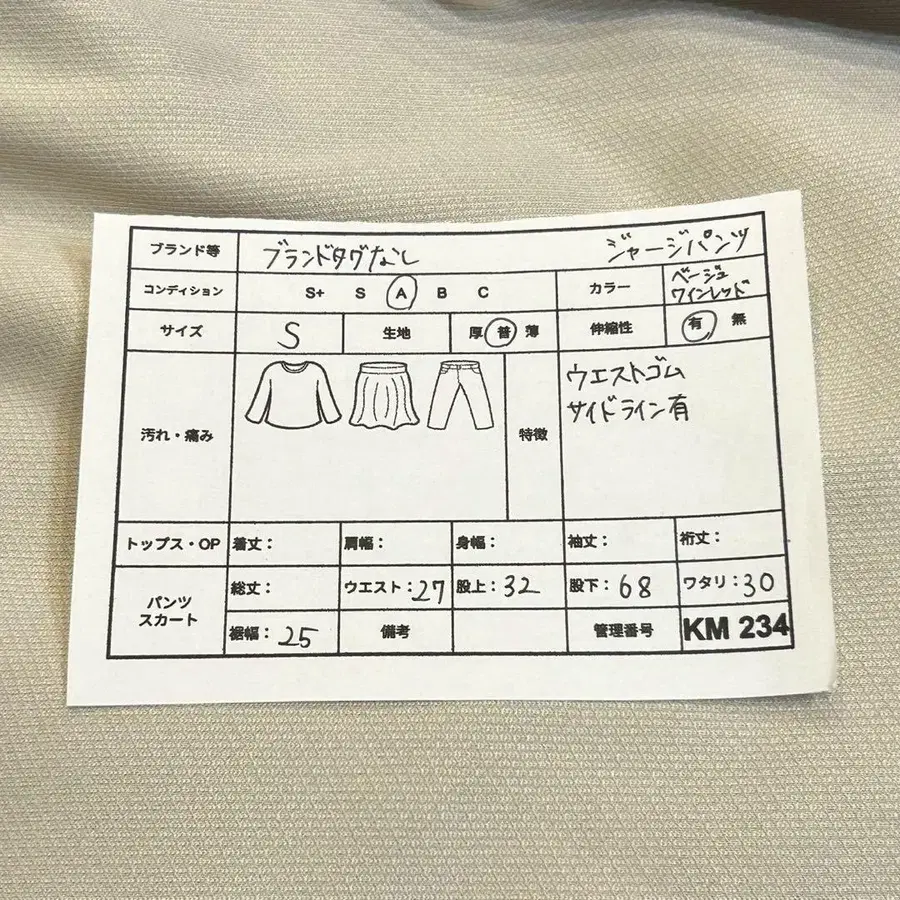 ブランド等 ブランドタグなし ジャージパンツ
コンディション S+ S A B C カラー ベージュ
ワインレッド
サイズ S 生地 厚 普 薄 伸縮性 有 無
汚れ・痛み 特徴 ウエストゴム
サイドライン有
トップス・OP 着丈: 肩幅: 身幅: 袖丈: 裄丈:
パンツ
スカート 総丈: ウエスト:27 股上:32 股下:68 ワタリ:30
裾幅:25 備考 管理番号 KM 234